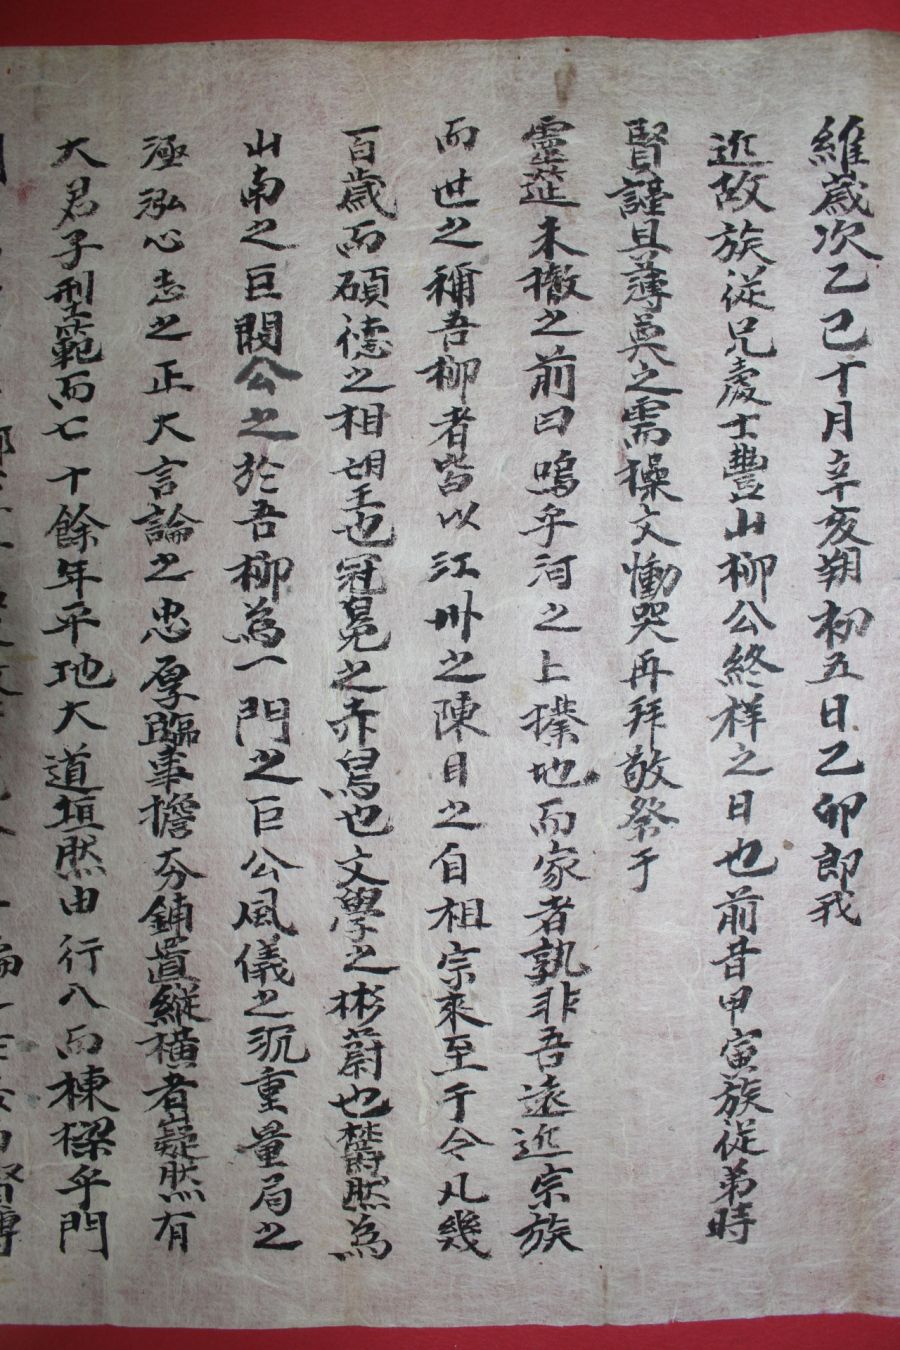 維歲次乙巳十月辛亥朔初五日乙卯郎我
近故族從兄處士豊山柳公終祥之日也前昔甲寅族從弟時
賢謹具薄奠之需操文慟哭再拜敬祭于
靈筵未撤之前曰嗚乎河之上撲地而家者孰非吾遠近宗族
而世之稱吾柳者皆以江州之陳目之自祖宗來至于今凡幾
百歲而碩德之相望也冠冕之赤舃也文學之彬蔚也欝然爲
山南之巨閥公之於吾柳爲一門之巨公風儀之沉重量局之
泓心志之正大言論之忠厚臨事擔夯鋪置縱橫者嶷然有
大君子型範而七十餘年平地大道垣然由行八而棟樑乎門